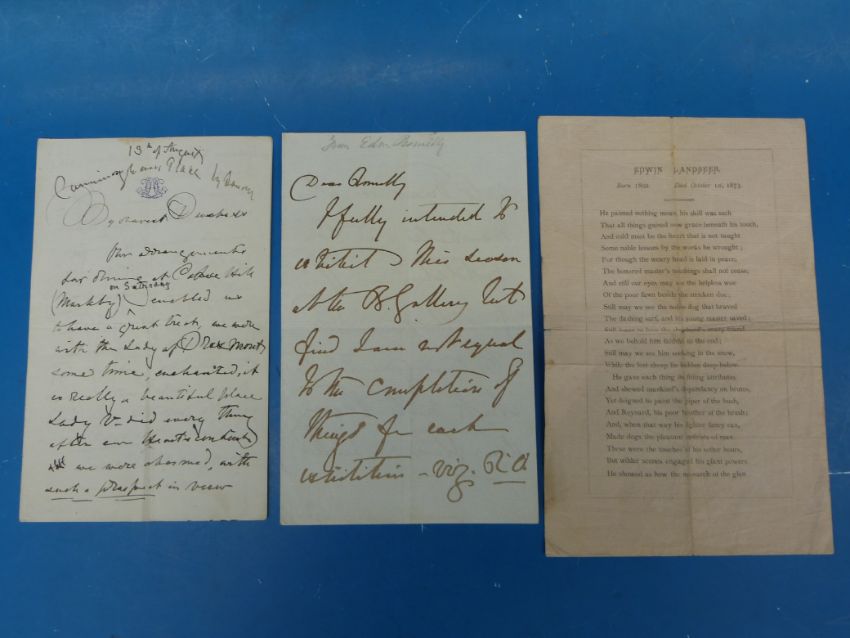 13th of August
Place
Dearest Duchess
Our arrangements
for dining at Hill
on Saturday
enabled us
to have a great treat, we were
with the Lady of
some time, enchanted, it
is really a beautiful place
Lady did every thing
after our hearts content
we were charmed, with
such a prospect in view
From Edwin
Dear
I fully intended to
exhibit this season
at the B. Gallery but
find I am not equal
to the completion of
things for each
institution - viz. R.A
EDWIN LANDSEER.
Born 1802. Died October 1st, 1873.
He painted nothing mean, his skill was such
That all things gained new grace beneath his touch,
And cold must be the heart that is not taught
Some noble lessons by the works he wrought;
For though the weary head is laid in peace,
The honored master's teachings shall not cease;
And still our eyes may see the helpless woe
Of the poor fawn beside the stricken doe;
Still may we see the noble dog that braved
The dashing surf, and his young master saved;
Still the shepherd's friend
As we behold him faithful to the end;
Still may we see him seeking in the snow,
While the lost sheep lie hidden deep below.
He gave each thing its fitting attributes
And showed mankind's dependancy on brutes,
Yet deigned to paint the piper of the bush,
And Reynard, his poor brother of the brush;
And, when that way his lighter fancy ran,
Made dogs the pleasant of man.
These were the touches of his softer hours,
But wilder scenes engaged his giant powers.
He showed us how the monarch of the glen